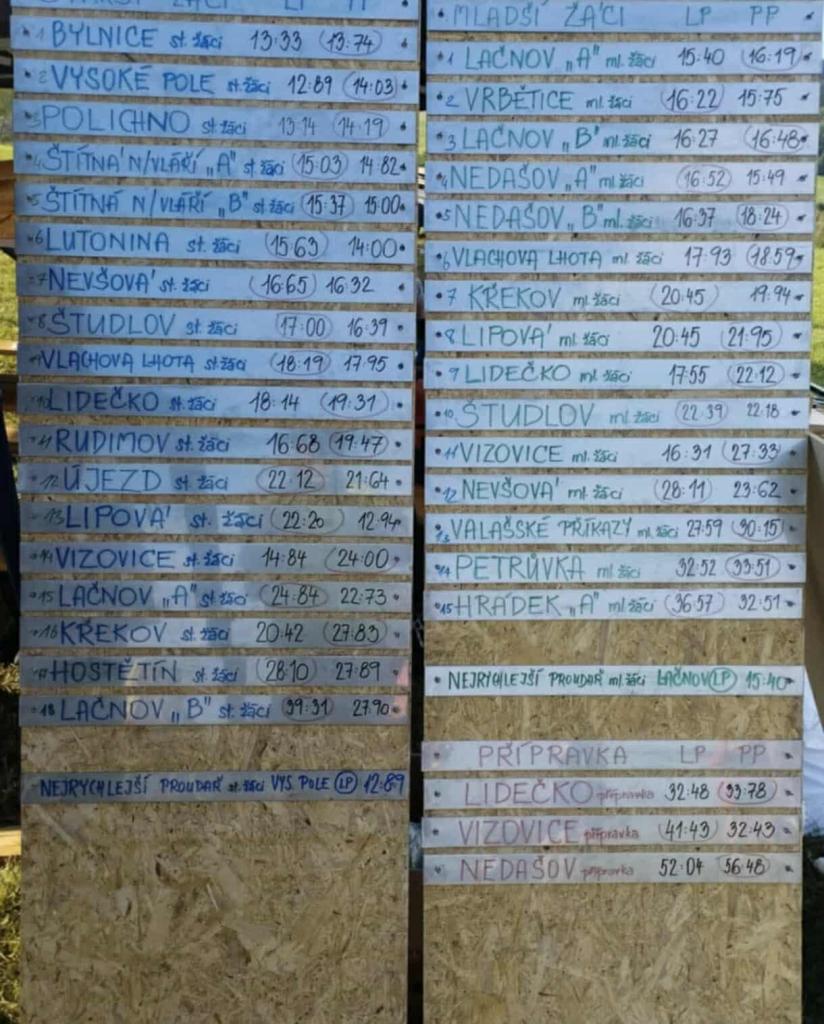 STARŠÍ ŽÁCI LP PP
1 BYLNICE st. žáci 13:33 13:74
2 VYSOKÉ POLE st. žáci 12:89 14:03
3 POLICHNO st. žáci 13:14 14:19
4 ŠTÍTNÁ N/VLÁŘÍ „A" st. žáci 15:03 14:82
5 ŠTÍTNÁ N/VLÁŘÍ „B" st. žáci 15:37 15:00
6 LUTONINA st. žáci 15:63 14:00
7 NEVŠOVÁ st. žáci 16:65 16:32
8 ŠTUDLOV st. žáci 17:00 16:39
9 VLACHOVA LHOTA st. žáci 18:19 17:95
10 LIDEČKO st. žáci 18:14 19:31
11 RUDIMOV st. žáci 16:68 19:47
12 ÚJEZD st. žáci 22:12 21:64
13 LIPOVÁ st. žáci 22:20 12:94
14 VIZOVICE st. žáci 14:84 24:00
15 LAČNOV „A" st. žáci 24:84 22:73
16 KŘEKOV st. žáci 20:42 27:83
17 HOSTĚTÍN st. žáci 28:10 27:89
18 LAČNOV „B" st. žáci 39:31 27:90
NEJRYCHLEJŠÍ PROUDAŘ st. žáci VYS. POLE LP 12:89
MLADŠÍ ŽÁCI LP PP
1 LAČNOV „A" ml. žáci 15:40 16:19
2 VRBĚTICE ml. žáci 16:22 15:75
3 LAČNOV „B" ml. žáci 16:27 16:48
4 NEDAŠOV „A" ml. žáci 16:52 15:49
5 NEDAŠOV „B" ml. žáci 16:37 18:24
6 VLACHOVA LHOTA ml. žáci 17:93 18:59
7 KŘEKOV ml. žáci 20:45 19:94
8 LIPOVÁ ml. žáci 20:45 21:95
9 LIDEČKO ml. žáci 17:55 22:12
10 ŠTUDLOV ml. žáci 22:39 22:18
11 VIZOVICE ml. žáci 16:31 27:33
12 NEVŠOVÁ ml. žáci 28:11 23:62
13 VALAŠSKÉ PŘÍKAZY ml. žáci 27:59 30:15
14 PETRŮVKA ml. žáci 32:52 33:51
15 HRÁDEK „A" ml. žáci 36:57 32:51
NEJRYCHLEJŠÍ PROUDAŘ ml. žáci LAČNOV LP 15:40
PŘÍPRAVKA LP PP
LIDEČKO přípravka 32:48 33:78
VIZOVICE přípravka 41:43 32:43
NEDAŠOV přípravka 52:04 56:48